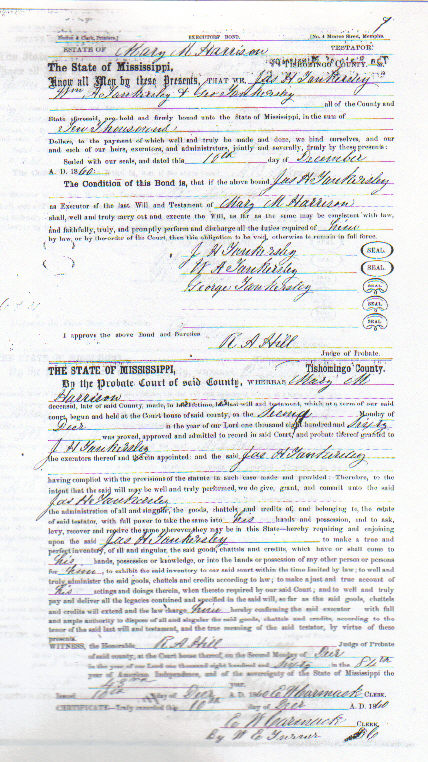 9
EXECUTORS' BOND.
ESTATE OF Mary M Harrison TESTATOR.
The State of Mississippi, TISHOMINGO COUNTY.
Know all Men by these Presents, THAT WE, Jas H Tankersley
Wm A Tankersley & Geo Tankersley
all of the County and
State aforesaid, are held and firmly bound unto the State of Mississippi, in the sum of
Ten Thousand
Dollars, to the payment of which well and truly be made and done, we bind ourselves, and our
and each of our heirs, executors, and administrators, jointly and severally, firmly by these presents:
Sealed with our seals, and dated this 10th day of December
A. D. 1860.
The Condition of this Bond is, that if the above bound Jas H Tankersley
as Executor of the last Will and Testament of Mary M Harrison
shall, well and truly carry out and execute the Will, as far as the same may be consistent with law,
and faithfully, truly, and promptly perform and discharge all the duties required of him
by law, or by the order of the Court, then this obligation to be void, otherwise to remain in full force.
J H Tankersley SEAL
W A Tankersley SEAL
George Tankersley SEAL
SEAL
SEAL
I approve the above Bond and Sureties
R A Hill
Judge of Probate.
THE STATE OF MISSISSIPPI, Tishomingo County.
By the Probate Court of said County, WHEREAS Mary M
Harrison
deceased, late of said County, made, in her life time, her last will and testament, which at a term of our said
court, begun and held at the Court house of said county, on the Second Monday of
Decr in the year of our Lord one thousand eight hundred and sixty
was proved, approved and admitted to record in said Court, and probate thereof granted to
J H Tankersley
the executors thereof and appointed: and the said Jas H Tankersley
having complied with the provisions of the statute in such case made and provided: Therefore, to the
intent that the said will may be well and truly performed, we do give, grant, and commit unto the said
Jas H Tankersley
the administration of all and singular, the goods, chattels and credits of, and belonging to, the estate
of said testator, with full power to take the same into his hands and possession, and to ask,
levy, recover and receive the same wheresoever they may be in this State—hereby requiring and enjoining
upon the said Jas H Tankersley to make a true and
perfect inventory, of all and singular, the said goods, chattels and credits, which have or shall come to
his hands, possession or knowledge, or into the hands or possession of any other person or persons
for him, to exhibit the said inventory to our said court within the time limited by law; to well and
truly administer the said goods, chattels and credits according to law; to make a just and true account of
his actings and doings therein, when thereto required by our said Court; and to well and truly
pay and deliver all the legacies contained and specified in the said will, so far as the said goods, chattels
and credits will extend and the law charge him hereby confirming the said executor with full
and ample authority to dispose of all and singular the said goods, chattels and credits, according to the
tenor of the said last will and testament, and the true meaning of the said testator, by virtue of these
presents.
WITNESS, the Honorable R A Hill Judge of Probate
of said county, at the Court house thereof, on the Second Monday of Decr
in the year of our Lord one thousand eight hundred and Sixty in the 84th
year of American Independence, and of the sovereignty of the State of Mississippi the
year.
Issued 10th day of Decr A. D. 1860 E W Carmack CLERK.
CERTIFICATE—Truly recorded this 10th day of Decr A. D. 1860
E W Carmack CLERK,
By W E Turner